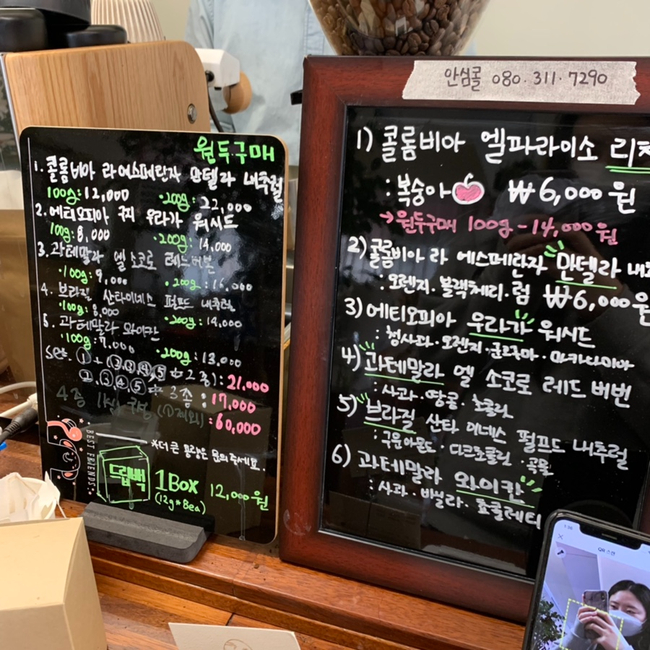 원두구매
1. 콜롬비아 라 에스페란자 만델라 내추럴
100g: 12,000 · 200g: 22,000
2. 에티오피아 구지 우라가 워시드
100g: 8,000 200g: 14,000
3. 과테말라 엘 소코로 레드버번
·100g: 9,000 ·200g: 16,000
4. 브라질 산타이네스 펄프드 내추럴
·100g: 8,000 ·200g: 14,000
5. 과테말라 와이칸
·100g: 7,000 ·200g: 13,000
① + (③,④,⑤ 中 2종): 21,000
②,③,④,⑤ 中 3종: 17,000
4종 1kg 구성 (①제외): 60,000
*더 큰 용량은 문의주세요.
BEST FRIENDS
드립백 1Box 12,000원
(12g*8ea)
안심콜 080.311.7290
1) 콜롬비아 엘파라이소 리치
: 복숭아 ₩6,000원
→ 원두구매 100g - 14,000원
2) 콜롬비아 라 에스페란자 만델라 내
: 오렌지. 블랙체리. 럼 ₩6,000원
3) 에티오피아 우라가 워시드
: 청사과 · 오렌지 · · 마카다미아
4) 과테말라 엘 소코로 레드 버번
: 사과 · 땅콩 · 초콜릿
5) 브라질 산타 이네스 펄프드 내추럴
: 구운아몬드 · 다크초콜릿 · 곡물
6) 과테말라 와이칸
: 사과 · 바닐라 · 쵸콜레티